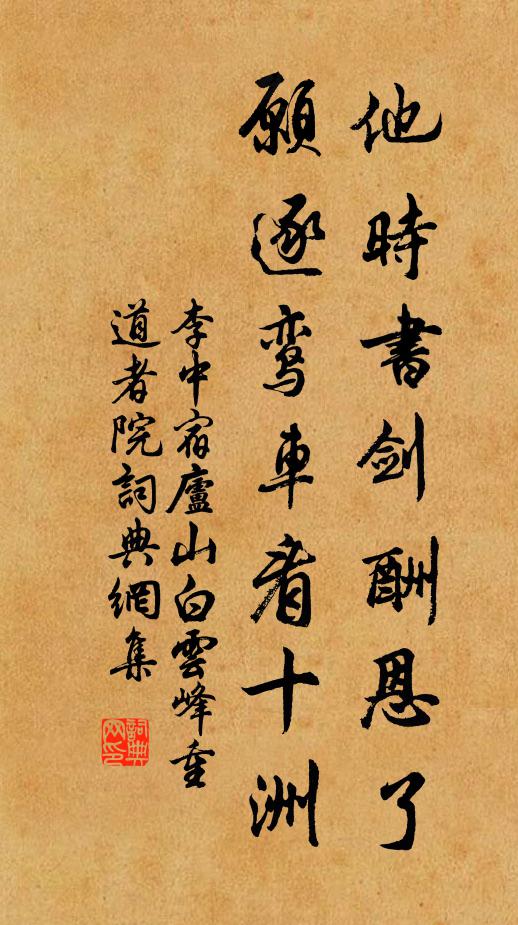 他時書剑酬恩了
願逐鸾車看十洲
李中宿廬山白雲峰重
道者院詞典網集
詞典网印